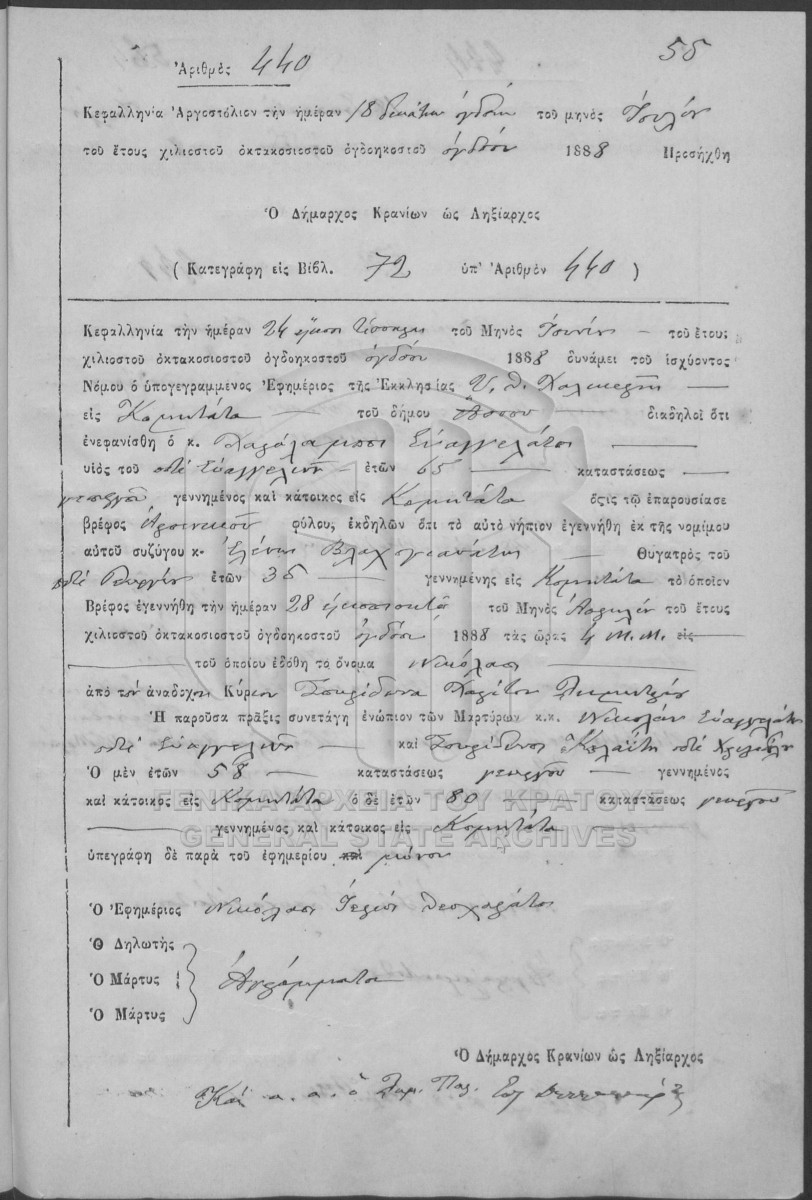 55
Ἀριθμὸς 440
Κεφαλληνία Ἀργοστόλιον τὴν ἡμέραν 18 δεκάτην ὀγδόην τοῦ μηνὸς Ἰουλίου
τοῦ ἔτους χιλιοστοῦ ὀκτακοσιοστοῦ ὀγδοηκοστοῦ ὀγδόου 1888 Προσήχθη
Ὁ Δήμαρχος Κρανίων ὡς Ληξίαρχος
(Κατεγράφη εἰς Βιβλ. 72 ὑπ' Ἀριθμὸν 440)
Κεφαλληνία τὴν ἡμέραν 24 εἴκοσι τέσσαρες τοῦ Μηνὸς Ἰουνίου τοῦ ἔτους
χιλιοστοῦ ὀκτακοσιοστοῦ ὀγδοηκοστοῦ ὀγδόου 1888 δυνάμει τοῦ ἰσχύοντος
Νόμου ὁ ὑπογεγραμμένος Ἐφημέριος τῆς Ἐκκλησίας Υ. Θ.
εἰς Κομητάτα τοῦ δήμου Ἄσσου διαδηλοῖ ὅτι
ἐνεφανίσθη ὁ κ. Χαράλαμπος Εὐαγγελάτος
υἱὸς τοῦ ποτὲ Εὐαγγελινοῦ ἐτῶν 65 καταστάσεως
γεωργοῦ γεννημένος καὶ κάτοικος εἰς Κομητάτα ὅςτις τῷ ἐπαρουσίασε
βρέφος ἀρσενικοῦ φύλου, ἐκδηλῶν ὅτι τὸ αὐτὸ νήπιον ἐγεννήθη ἐκ τῆς νομίμου
αὐτοῦ συζύγου κ. Ἑλένης Βλαχογιαννάτου Θυγατρὸς τοῦ
ποτὲ Γεωργίου ἐτῶν 35 γεννημένης εἰς Κομητάτα τὸ ὁποῖον
Βρέφος ἐγεννήθη τὴν ἡμέραν 28 εἰκοσιοκτὼ τοῦ Μηνὸς Ἀπριλίου τοῦ ἔτους
χιλιοστοῦ ὀκτακοσιοστοῦ ὀγδοηκοστοῦ ὀγδόου 1888 τὰς ὥρας 4 Μ.Μ. εἰς
τοῦ ὁποίου ἐδόθη τὸ ὄνομα Νικόλαος
ἀπὸ τὸν ἀνάδοχον Κύριον Σπυρίδωνα Δημητρίου
Ἡ παροῦσα πρᾶξις συνετάγη ἐνώπιον τῶν Μαρτύρων κ.κ. Νικολάου Εὐαγγελάτου
ποτὲ Εὐαγγελινοῦ καὶ Σπυρίδωνος ποτὲ
Ὁ μὲν ἐτῶν 58 καταστάσεως γεωργοῦ γεννημένος
καὶ κάτοικος εἰς Κομητάτα ὁ δὲ ἐτῶν 80 καταστάσεως γεωργοῦ
γεννημένος καὶ κάτοικος εἰς Κομητάτα
ὑπεγράφη δὲ παρὰ τοῦ ἐφημερίου καὶ μόνου
ΓΕΝΙΚΑ ΑΡΧΕΙΑ ΤΟΥ ΚΡΑΤΟΥΣ
GENERAL STATE ARCHIVES
Ὁ Ἐφημέριος Νικόλαος Ἱερεὺς
Ὁ Δηλωτὴς
Ὁ Μάρτυς Ἀγράμματοι
Ὁ Μάρτυς
Ὁ Δήμαρχος Κρανίων ὡς Ληξίαρχος